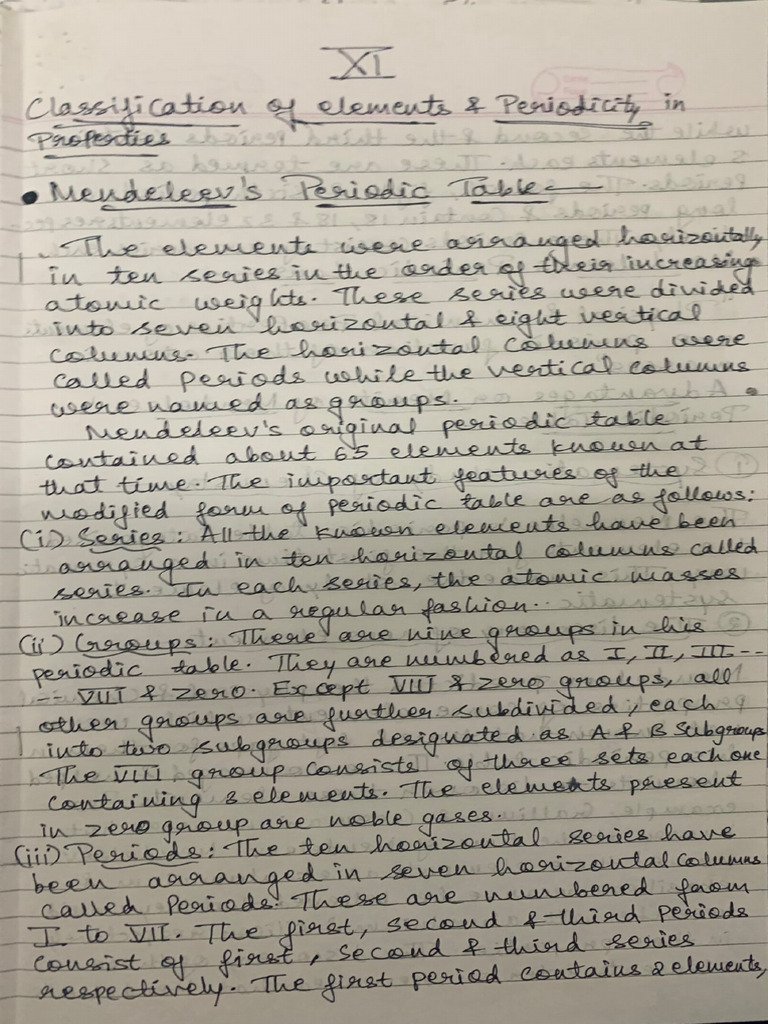 XI
Classification of elements & Periodicity in
Properties
• Mendeleev's Periodic Table —
The elements were arranged horizontally
in ten series in the order of their increasing
atomic weights. These series were divided
into seven horizontal & eight vertical
columns. The horizontal columns were
called periods while the vertical columns
were named as groups.
Mendeleev's original periodic table
contained about 65 elements known at
that time. The important features of the
modified form of periodic table are as follows:
(i) Series: All the known elements have been
arranged in ten horizontal columns called
series. In each series, the atomic masses
increase in a regular fashion..
(ii) Groups: There are nine groups in his
periodic table. They are numbered as I, II, III --
-- VIII & zero. Except VIII & zero groups, all
other groups are further subdivided, each
into two subgroups designated as A & B subgroups
The VIII group consists of three sets each one
containing 3 elements. The elements present
in zero group are noble gases.
(iii) Periods: The ten horizontal series have
been arranged in seven horizontal columns
called Periods. These are numbered from
I to VII. The first, second & third periods
consist of first, second & third series
respectively. The first period contains 2 elements,